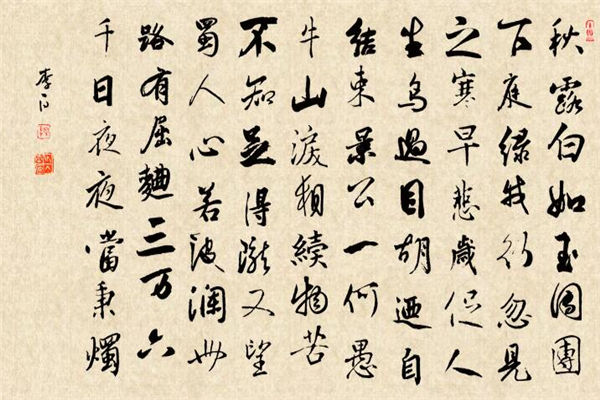 秋露白如玉團團
下庭綠我行忽見
之寒早悲歲促人
生鳥過目胡迺自
結束景公一何愚
牛山淚相續物苦
不知足得隴又望
蜀人心若波瀾世
路有屈麯三万六
千日夜夜當秉燭
李白